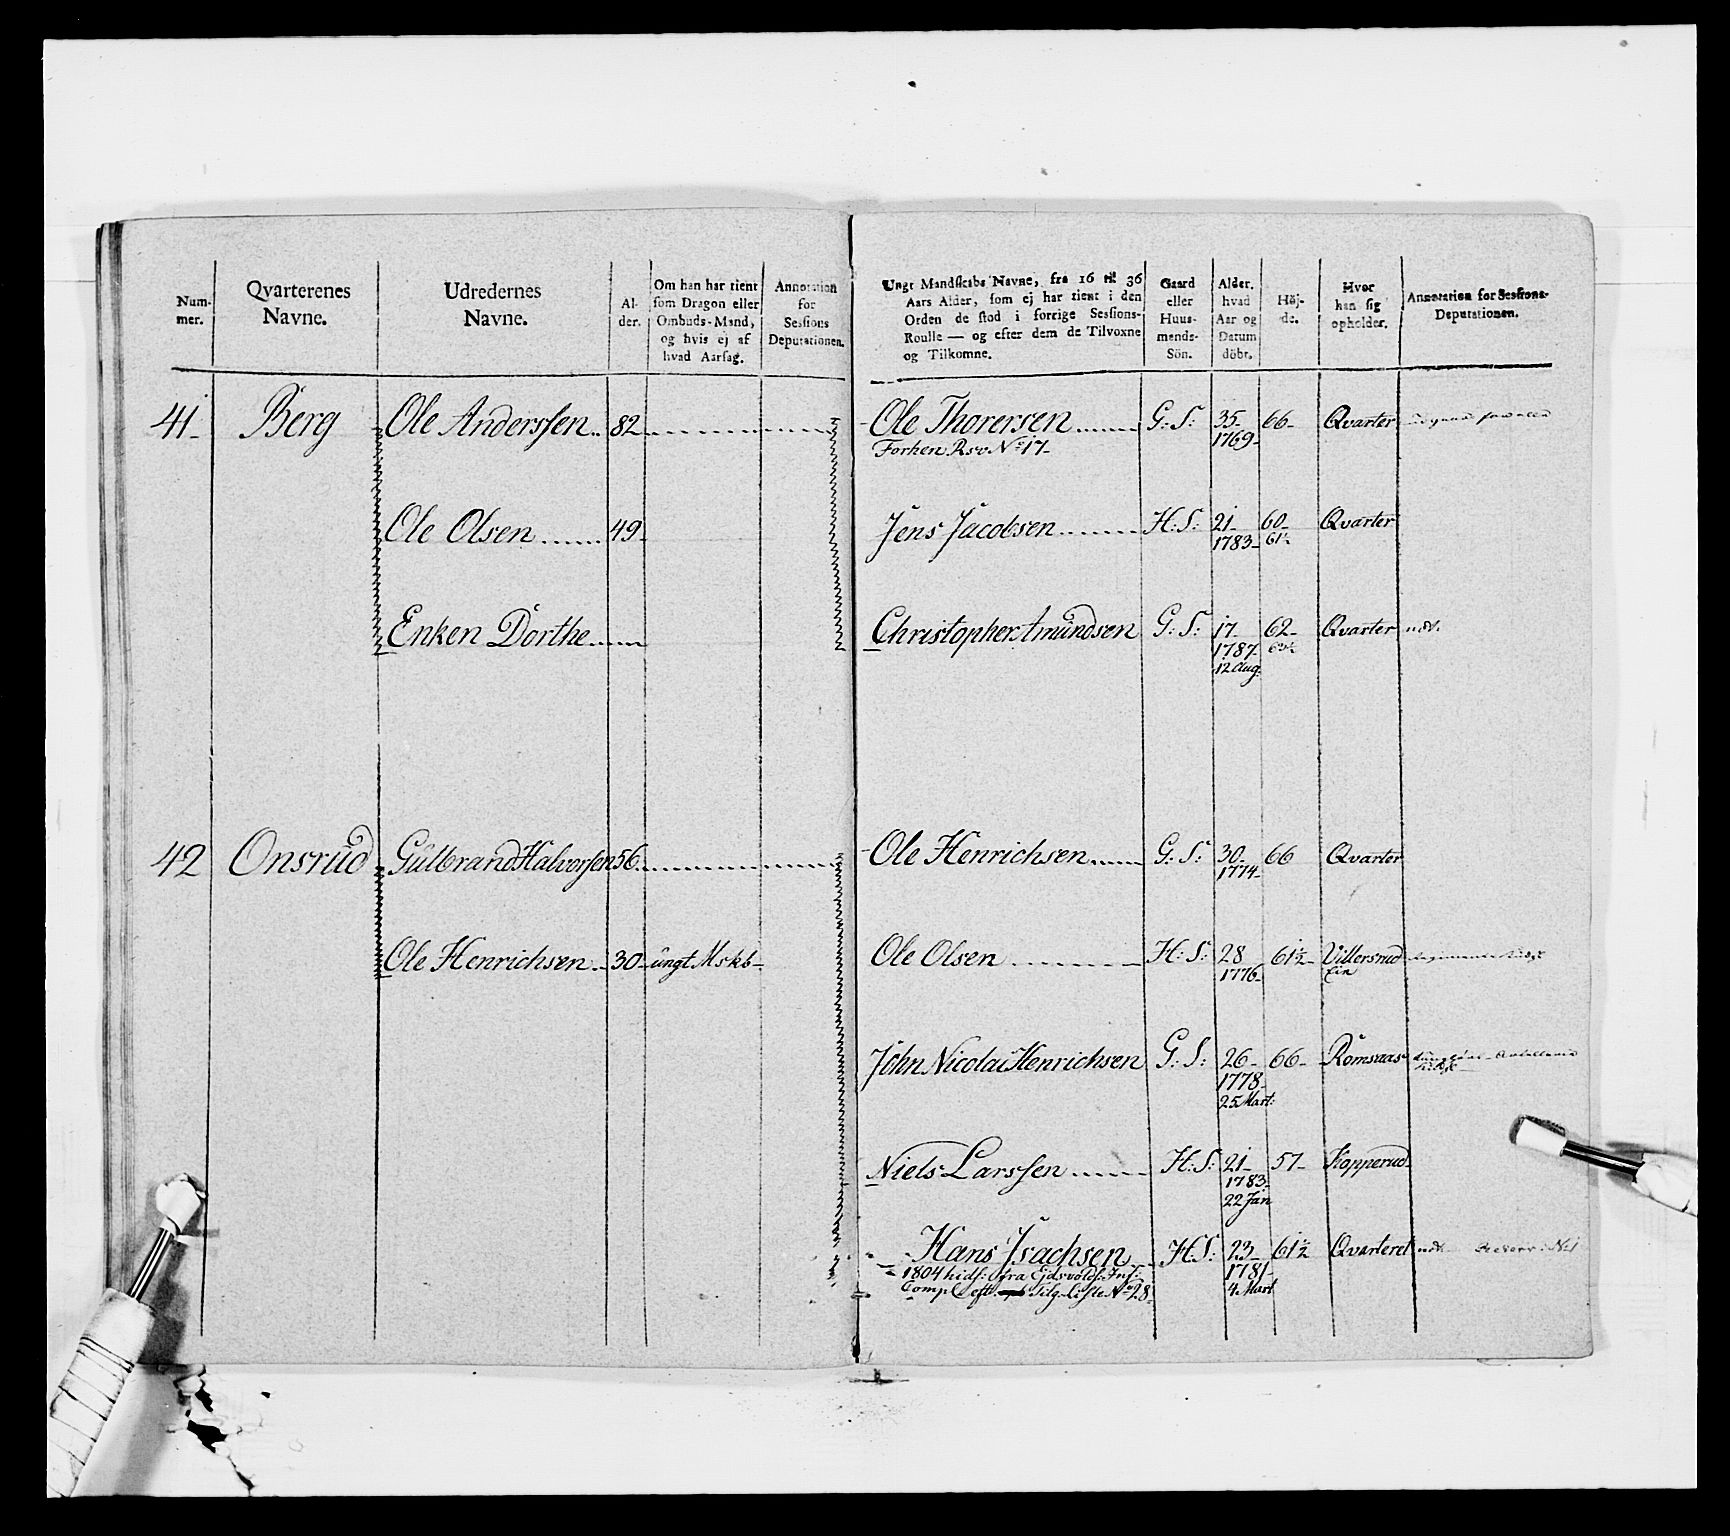 Num-
mer.
Qvarterenes
Navne.
Udredernes
Navne.
Al-
der.
Om han har tient
som Dragon eller
Ombuds-Mand,
og hvis ej af
hvad Aarsag.
Annotation
for
Sessions
Deputationen.
Ungt Mandskabs Navne, fra 16 til 36
Aars Alder, som ej har tient i den
Orden de stod i forrige Sessions-
Roulle — og efter dem de Tilvoxne
og Tilkomne.
Gaard
eller
Huus-
mends-
Sön.
Alder.
hvad
Aar og
Datum
döbt.
Höj-
de.
Hvor
han sig
opholder.
Annotation for Sessions-
Deputationen.
41. Berg Ole Anderssen 82
Ole Thorersen G: S: 35 66 Qvarter
Forhen Rsv No 17 1769
Ole Olsen 49
Jens Jacobsen H: S: 21 60 Qvarter
1783 61½
Enken Dorthe
Christopher Amundsen G: S: 17 62 Qvarter udt.
1787
12 Aug.
42 Onsrud Gulbrand Halvorsen 56
Ole Henrichsen G: S: 30 66 Qvarter
1774
Ole Henrichsen 30 ungt Mskb
Ole Olsen H: S: 28 61½ Villersrud
1776 Ein
John Nicolai Henrichsen G: S: 26 66 Romsaas
1778
25 Mart:
Niels Larssen H: S: 21 57 Kopperud
1783
22 Jan
Hans Isachsen H: S: 23 61½ Qvarteret udt. Reserv: No 1
1804 hids: fra Ejdsvolds Inf: 1781
Comp: eft. Tilg. Liste No 28 4 Mart